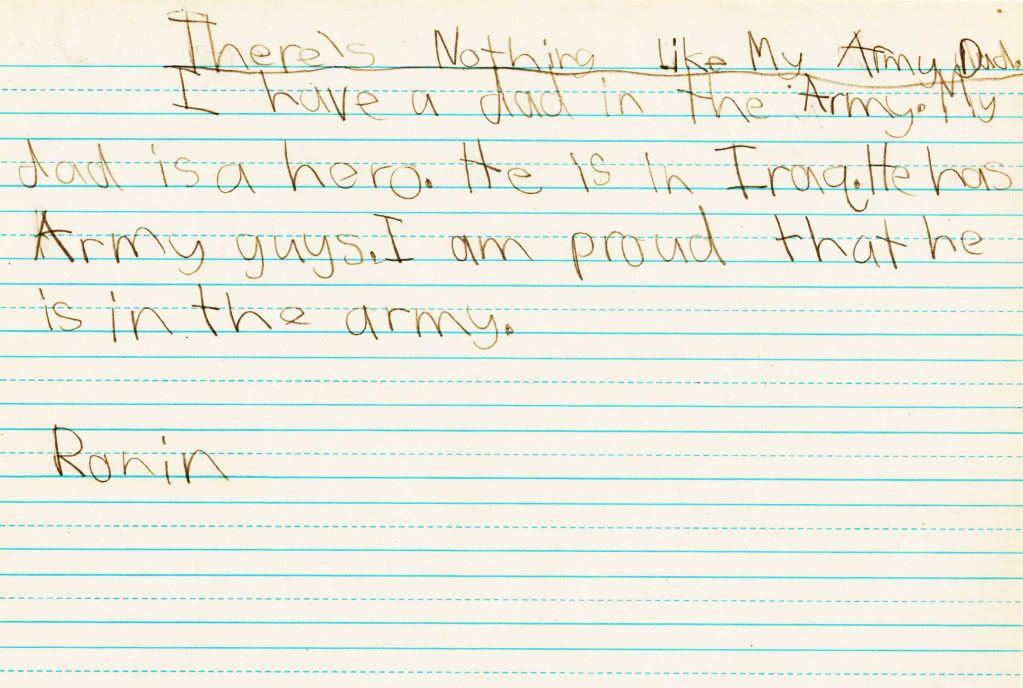 There's Nothing Like My Army Dad.
I have a dad in the Army. My
dad is a hero. He is in Iraq. He has
Army guys. I am proud that he
is in the army.
Ronin